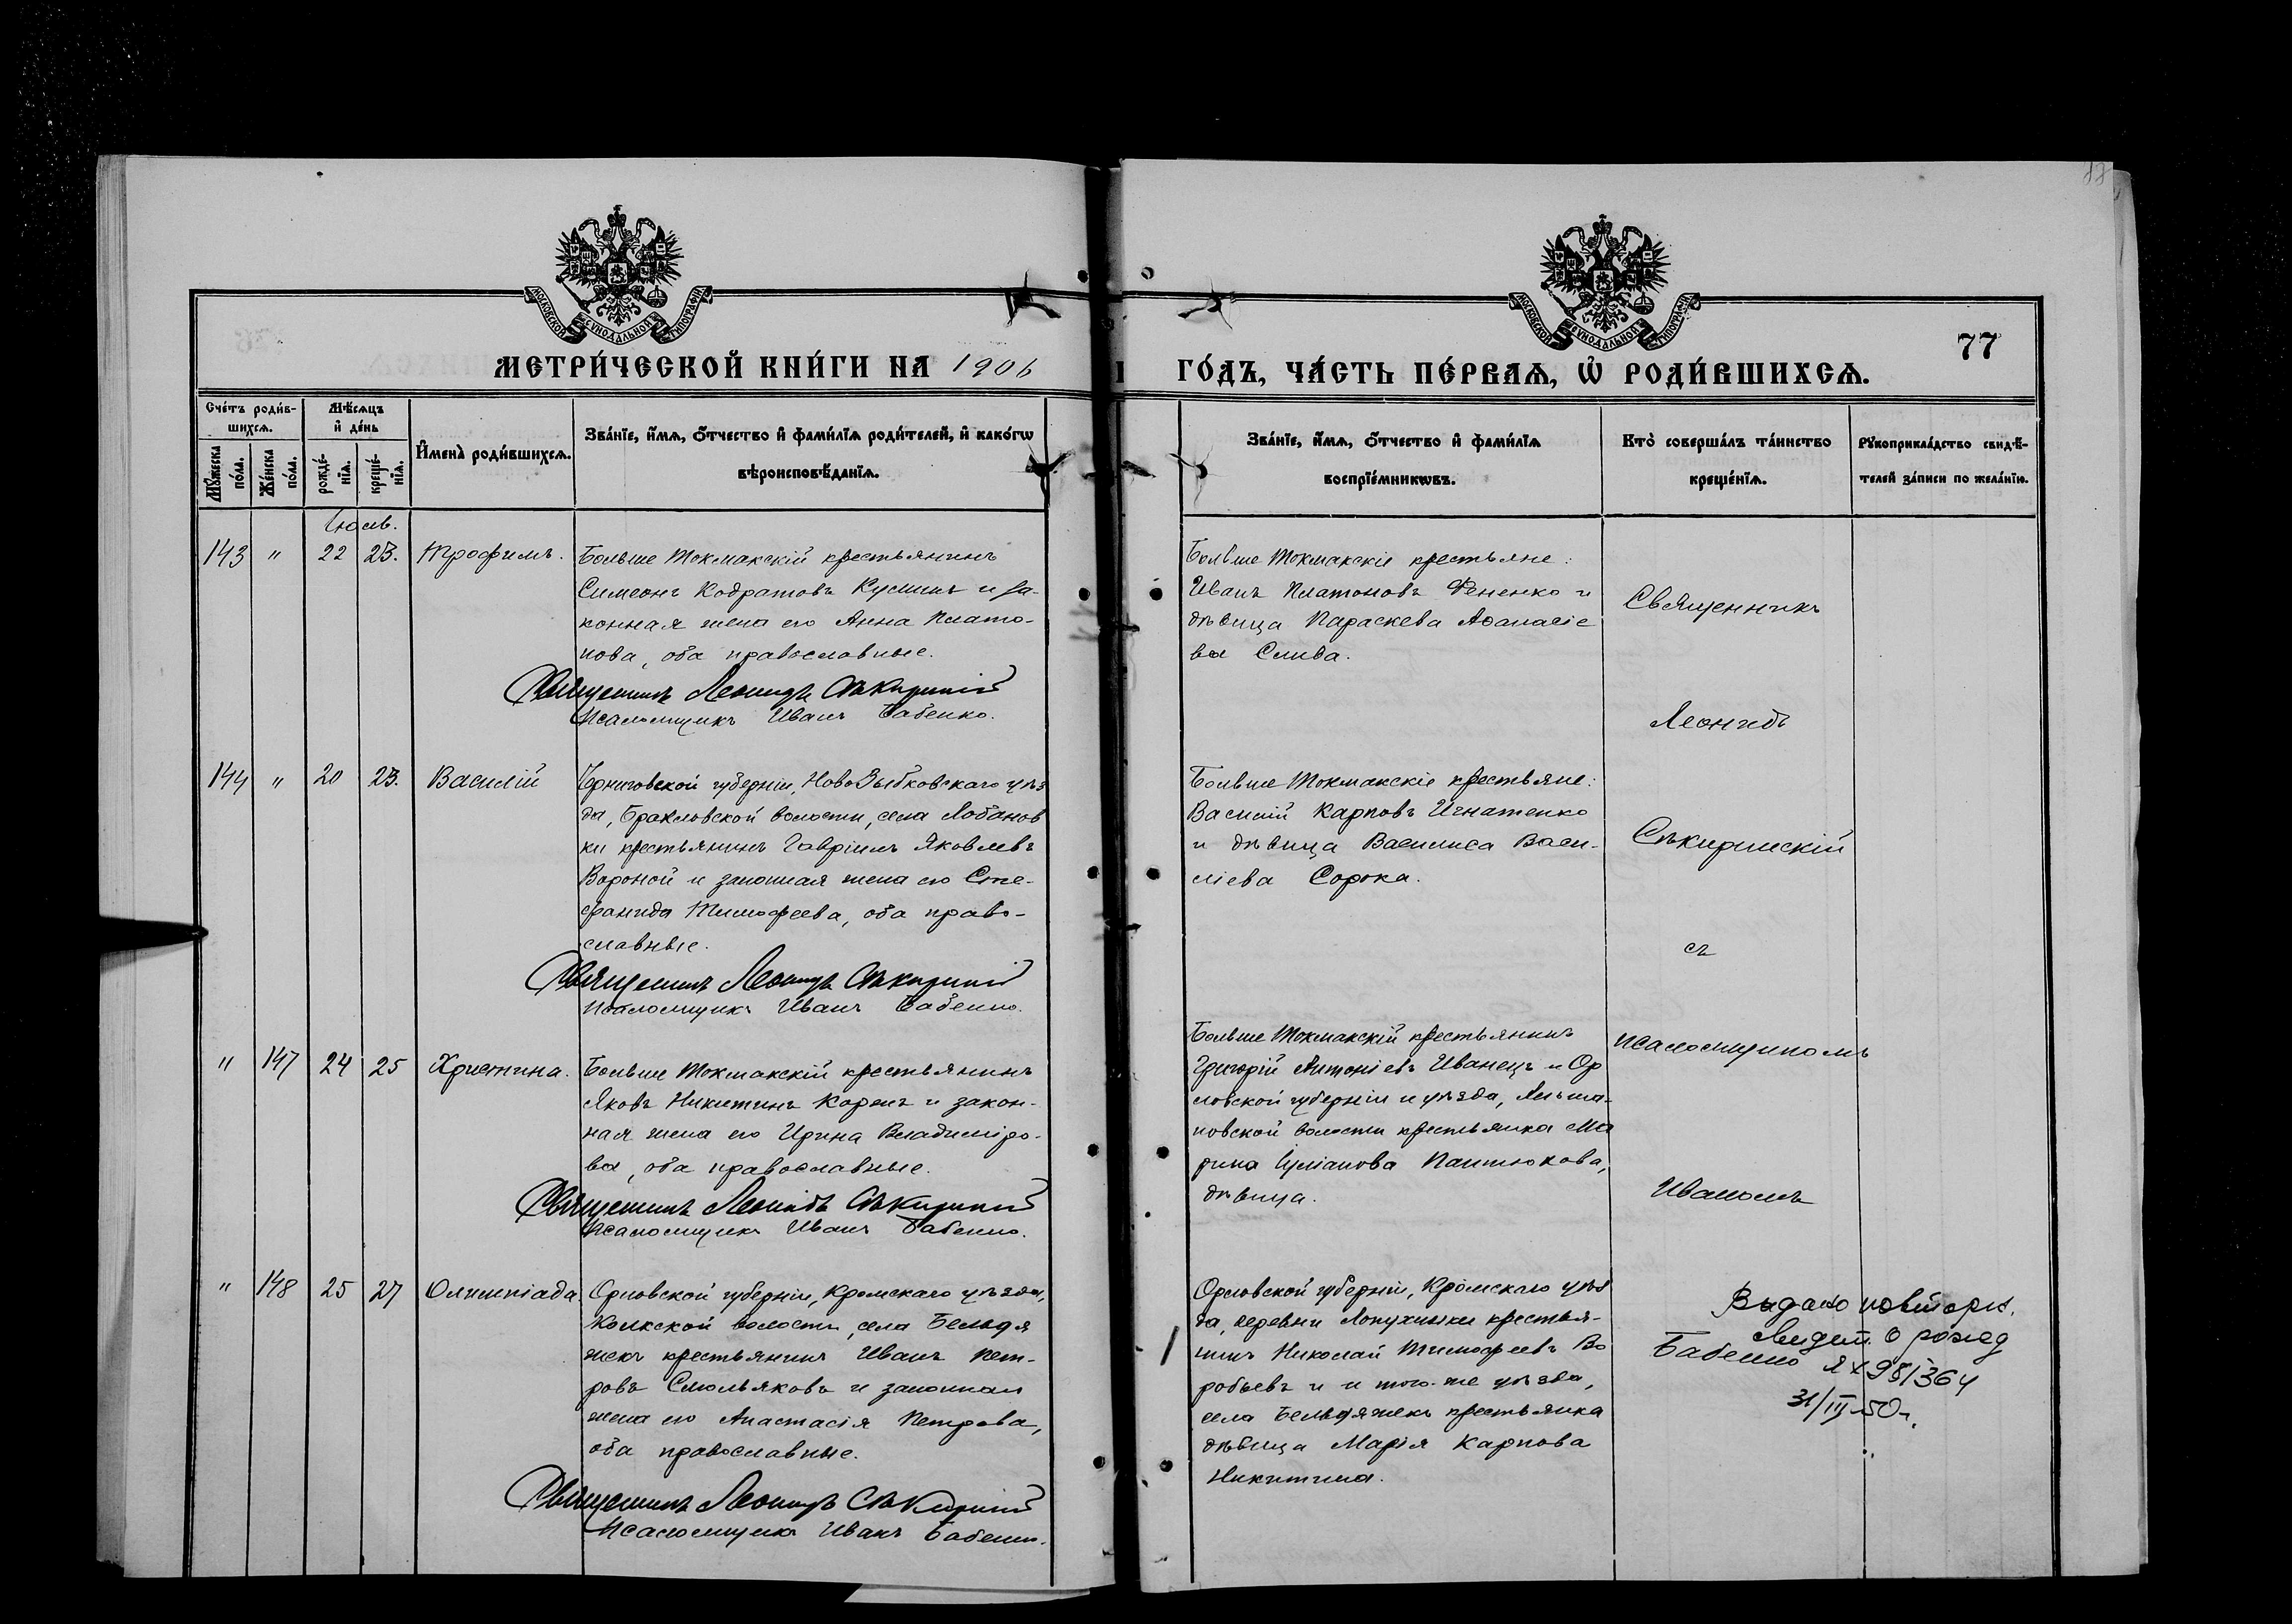 88
МОСКОВСКОЙ СѴНОДАЛЬНОЙ ТИПОГРАФІИ
МОСКОВСКОЙ СѴНОДАЛЬНОЙ ТИПОГРАФІИ
77
МЕТРИ́ЧЕСКОЙ КНИ́ГИ НА 1906
ГО́ДЪ, ЧА́СТЬ ПЕ́РВАѦ, Ѡ҆ РОДИ́ВШИХСѦ.
Сче́тъ роди́в-
шихсѧ.
Мѣ́сѧцъ
и҆ де́нь
Мꙋ́жеска по́ла.
Же́нска по́ла.
рожде́-нїѧ.
креще́-нїѧ.
И҆мена̀ роди́вшихсѧ.
Зва́нїе, и҆́мѧ, ѻ҆́тчество и҆ фами́лїѧ роди́телей, и҆ како́гѡ
вѣроисповѣ́данїѧ.
Зва́нїе, и҆́мѧ, ѻ҆́тчество и҆ фами́лїѧ
воспрїе́мникѡвъ.
Кто̀ соверша́лъ та́инство
креще́нїѧ.
Рꙋкоприкла́дство свидѣ́-
телей за́писи по жела́нїю.
Іюль.
143 " 22 23. Трофимъ.
Больше Токмакскій крестьянинъ
Симеонъ Кодратовъ Куминъ и за-
конная жена его Анна Плато-
нова, оба православные.
Священникъ Леонидъ Сѣкиринскій
Псаломщикъ Иванъ Бабенко.
Больше Токмакскіе крестьяне:
Иванъ Платоновъ Фененко и
дѣвица Параскева Аѳанасіе
ва Слива.
Священникъ
Леонидъ
144 " 20 23. Василій
Черниговской губерніи, НовоЗыбковскаго уѣз
да, Брахловской волости, села Лобанов
ки крестьянинъ Гавріилъ Яковлевъ
Вороной и законная жена его Сте-
фанида Тимофеева, оба право-
славные.
Священникъ Леонидъ Сѣкиринскій
Псаломщикъ Иванъ Бабенко.
Больше Токмакскіе крестьяне:
Василій Карповъ Игнатенко
и дѣвица Василиса Васи-
ліева Сорока.
Сѣкиринскій
съ
" 147 24 25 Христина.
Больше Токмакскій крестьянинъ
Яковъ Никитинъ Корень и закон-
ная жена его Ирина Владиміро-
ва, оба православные.
Священникъ Леонидъ Сѣкиринскій
Псаломщикъ Иванъ Бабенко.
Больше Токмакскій крестьянинъ
Григорій Антоніевъ Иванець и Ор
ловской губерніи и уѣзда,
новской волости крестьянка Ма
рина Іуліанова Пантюхова,
дѣвица.
псаломщикомъ
Иваномъ
" 148 25 27 Олимпіада.
Орловской губерніи, Кромскаго уѣзда,
волости, села Бельдя
жекъ крестьянинъ Иванъ Пет-
ровъ Смольяковъ и законная
жена его Анастасія Петрова,
оба православные.
Священникъ Леонидъ Сѣкиринскій
Псаломщикъ Иванъ Бабенко.
Орловской губерніи, Кромскаго уѣз
да, деревни Лопухинки крестья-
нинъ Николай Тимофеевъ Во
робьевъ и и того-же уѣзда,
села Бельдяжекъ крестьянка
дѣвица Марія Карпова
Никитина.
Бабенко
Выдано повторн.
о рожд
981364
31/III-50г.